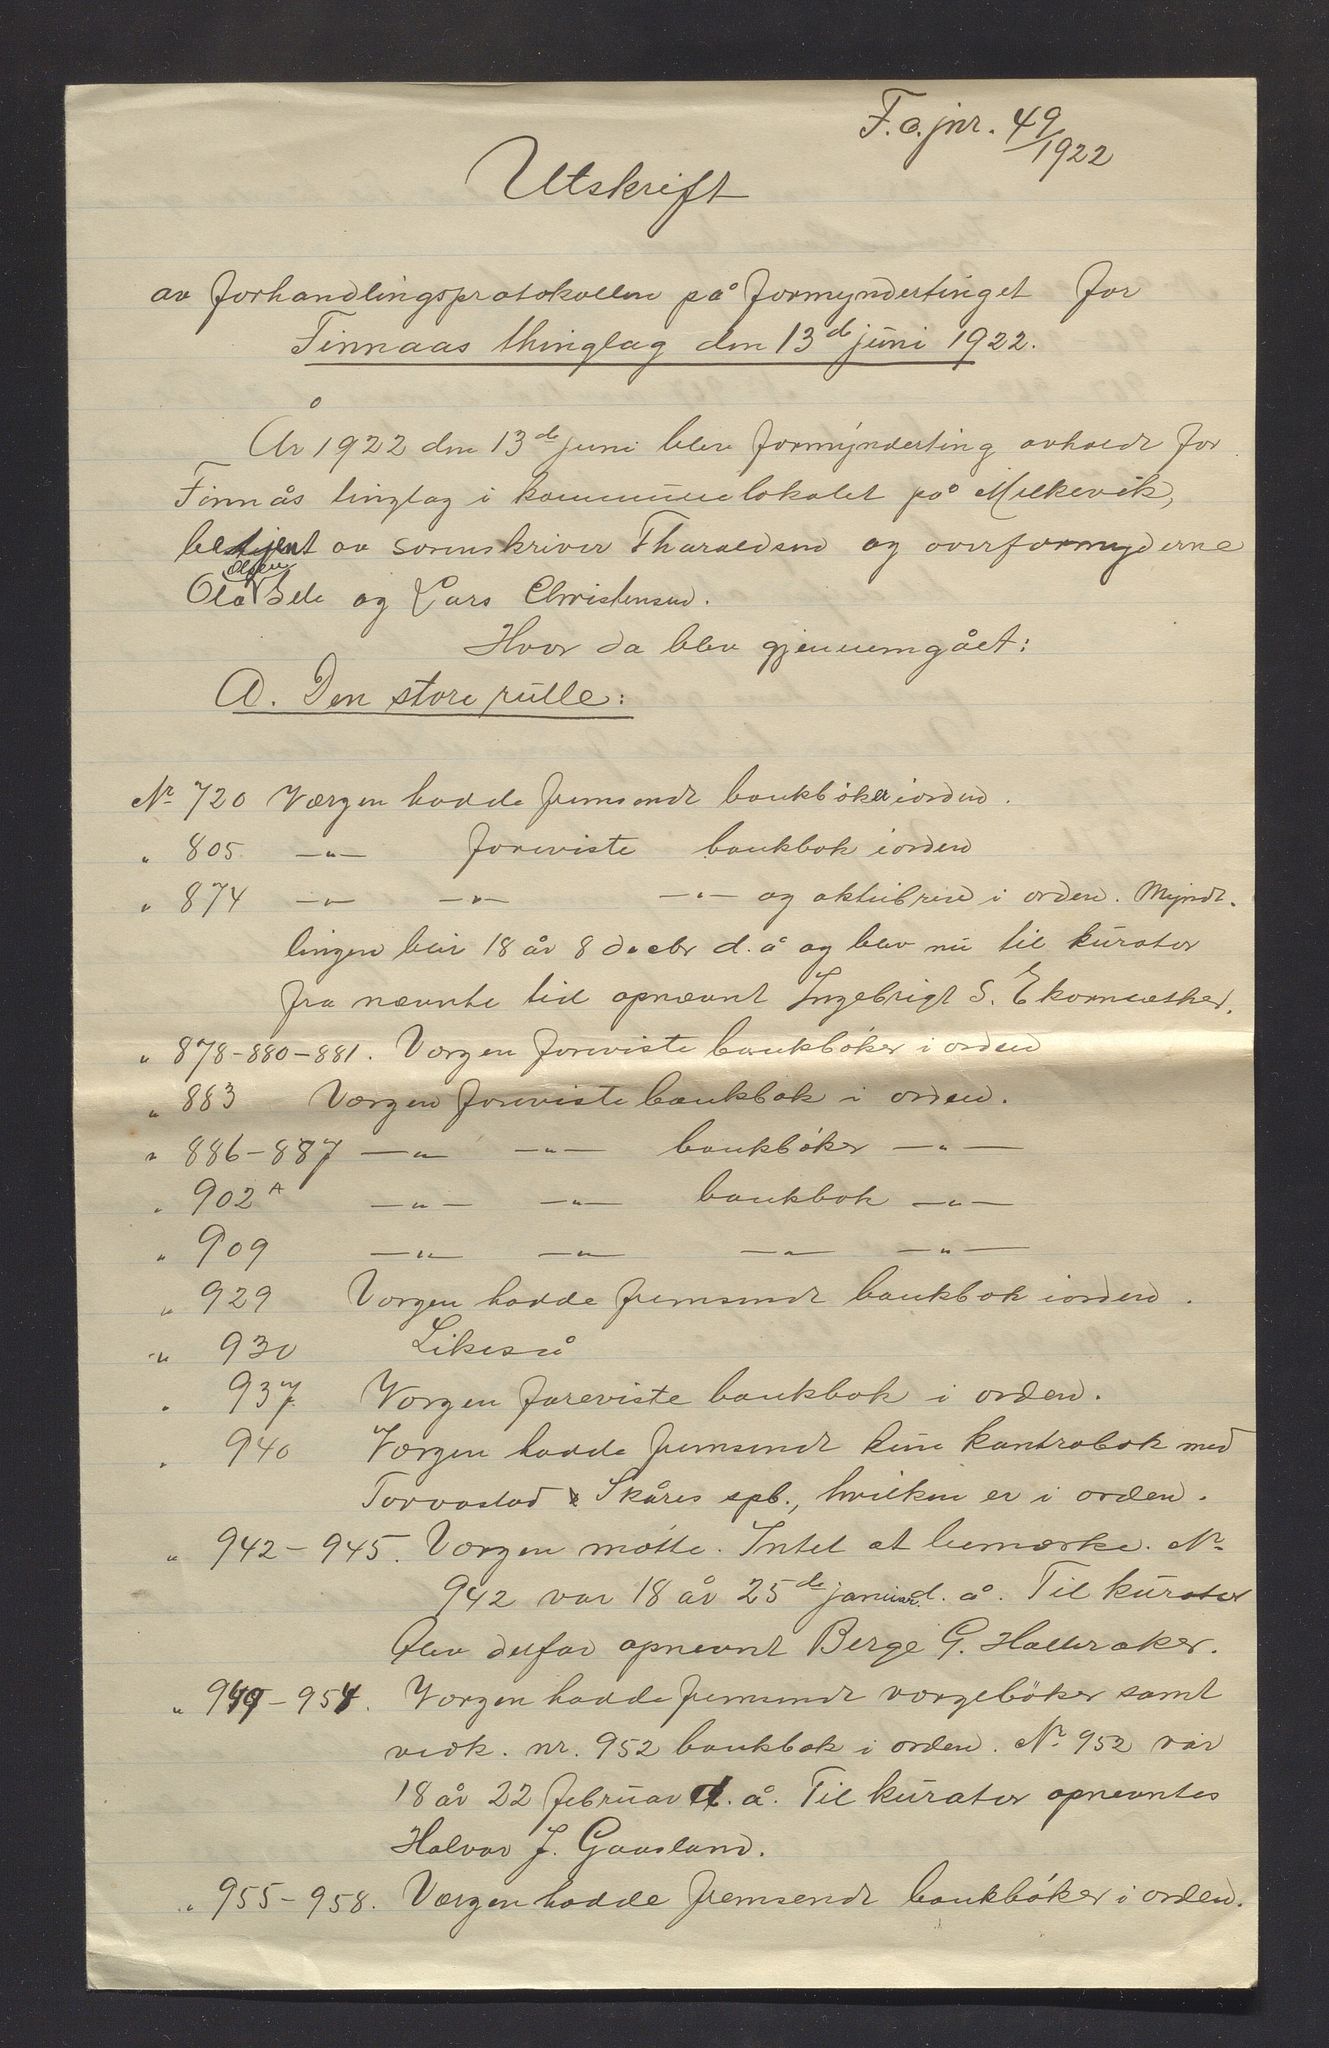 F.o.jnr. 49/1922
Utskrift
av forhandlingsprotokollen på formyndertinget for
Finnaas thinglag den 13de juni 1922.
År 1922 den 13de juni blev formynderting avholdt for
Finnås tinglag i kommunelokalet på
betjent av sorenskriver Tharaldsen og overformynderne
Ola Olsen og Lars Christensen.
Hvor da blev gjennemgået:
A. Den store rulle:
Nr 720 Værgen hadde fremsendt bankbøker i orden.
" 805 —"— foreviste bankbok i orden
" 874 —"— —"— —"— og aktiebrev i orden. Mynd-
lingen blir 18 år 8 decbr d.å og blev nu til kurator
fra nævnte tid opnævnt Ingebrigt S. Ekornsæther.
" 878-880-881. Værgen foreviste bankbøker i orden
" 883 Værgen foreviste bankbok i orden.
" 886-887 —"— —"— bankbøker —"—
" 902 A —"— —"— bankbok —"—
" 909 —"— —"— —"— —"—
" 929 Værgen hadde fremsendt bankbok i orden.
" 930 Likeså
" 937 Værgen foreviste bankbok i orden.
" 940 Værgen hadde fremsendt kun kontrabok med
Torvastad & Skåres spb., hvilken er i orden.
" 942-945. Værgen møtte. Intet at bemærke. Nr
942 var 18 år 25de januar d. å. Til kurator
blev derfor opnævnt Berge G. Halleraker.
" 949-954. Værgen hadde fremsendt værgebøker samt
vedk. nr. 952 bankbok i orden. Nr 952 var
18 år 22 februar d. å. Til kurator opnævntes
Halvor J. Gaasland.
" 955-958. Værgen hadde fremsendt bankbøker i orden.